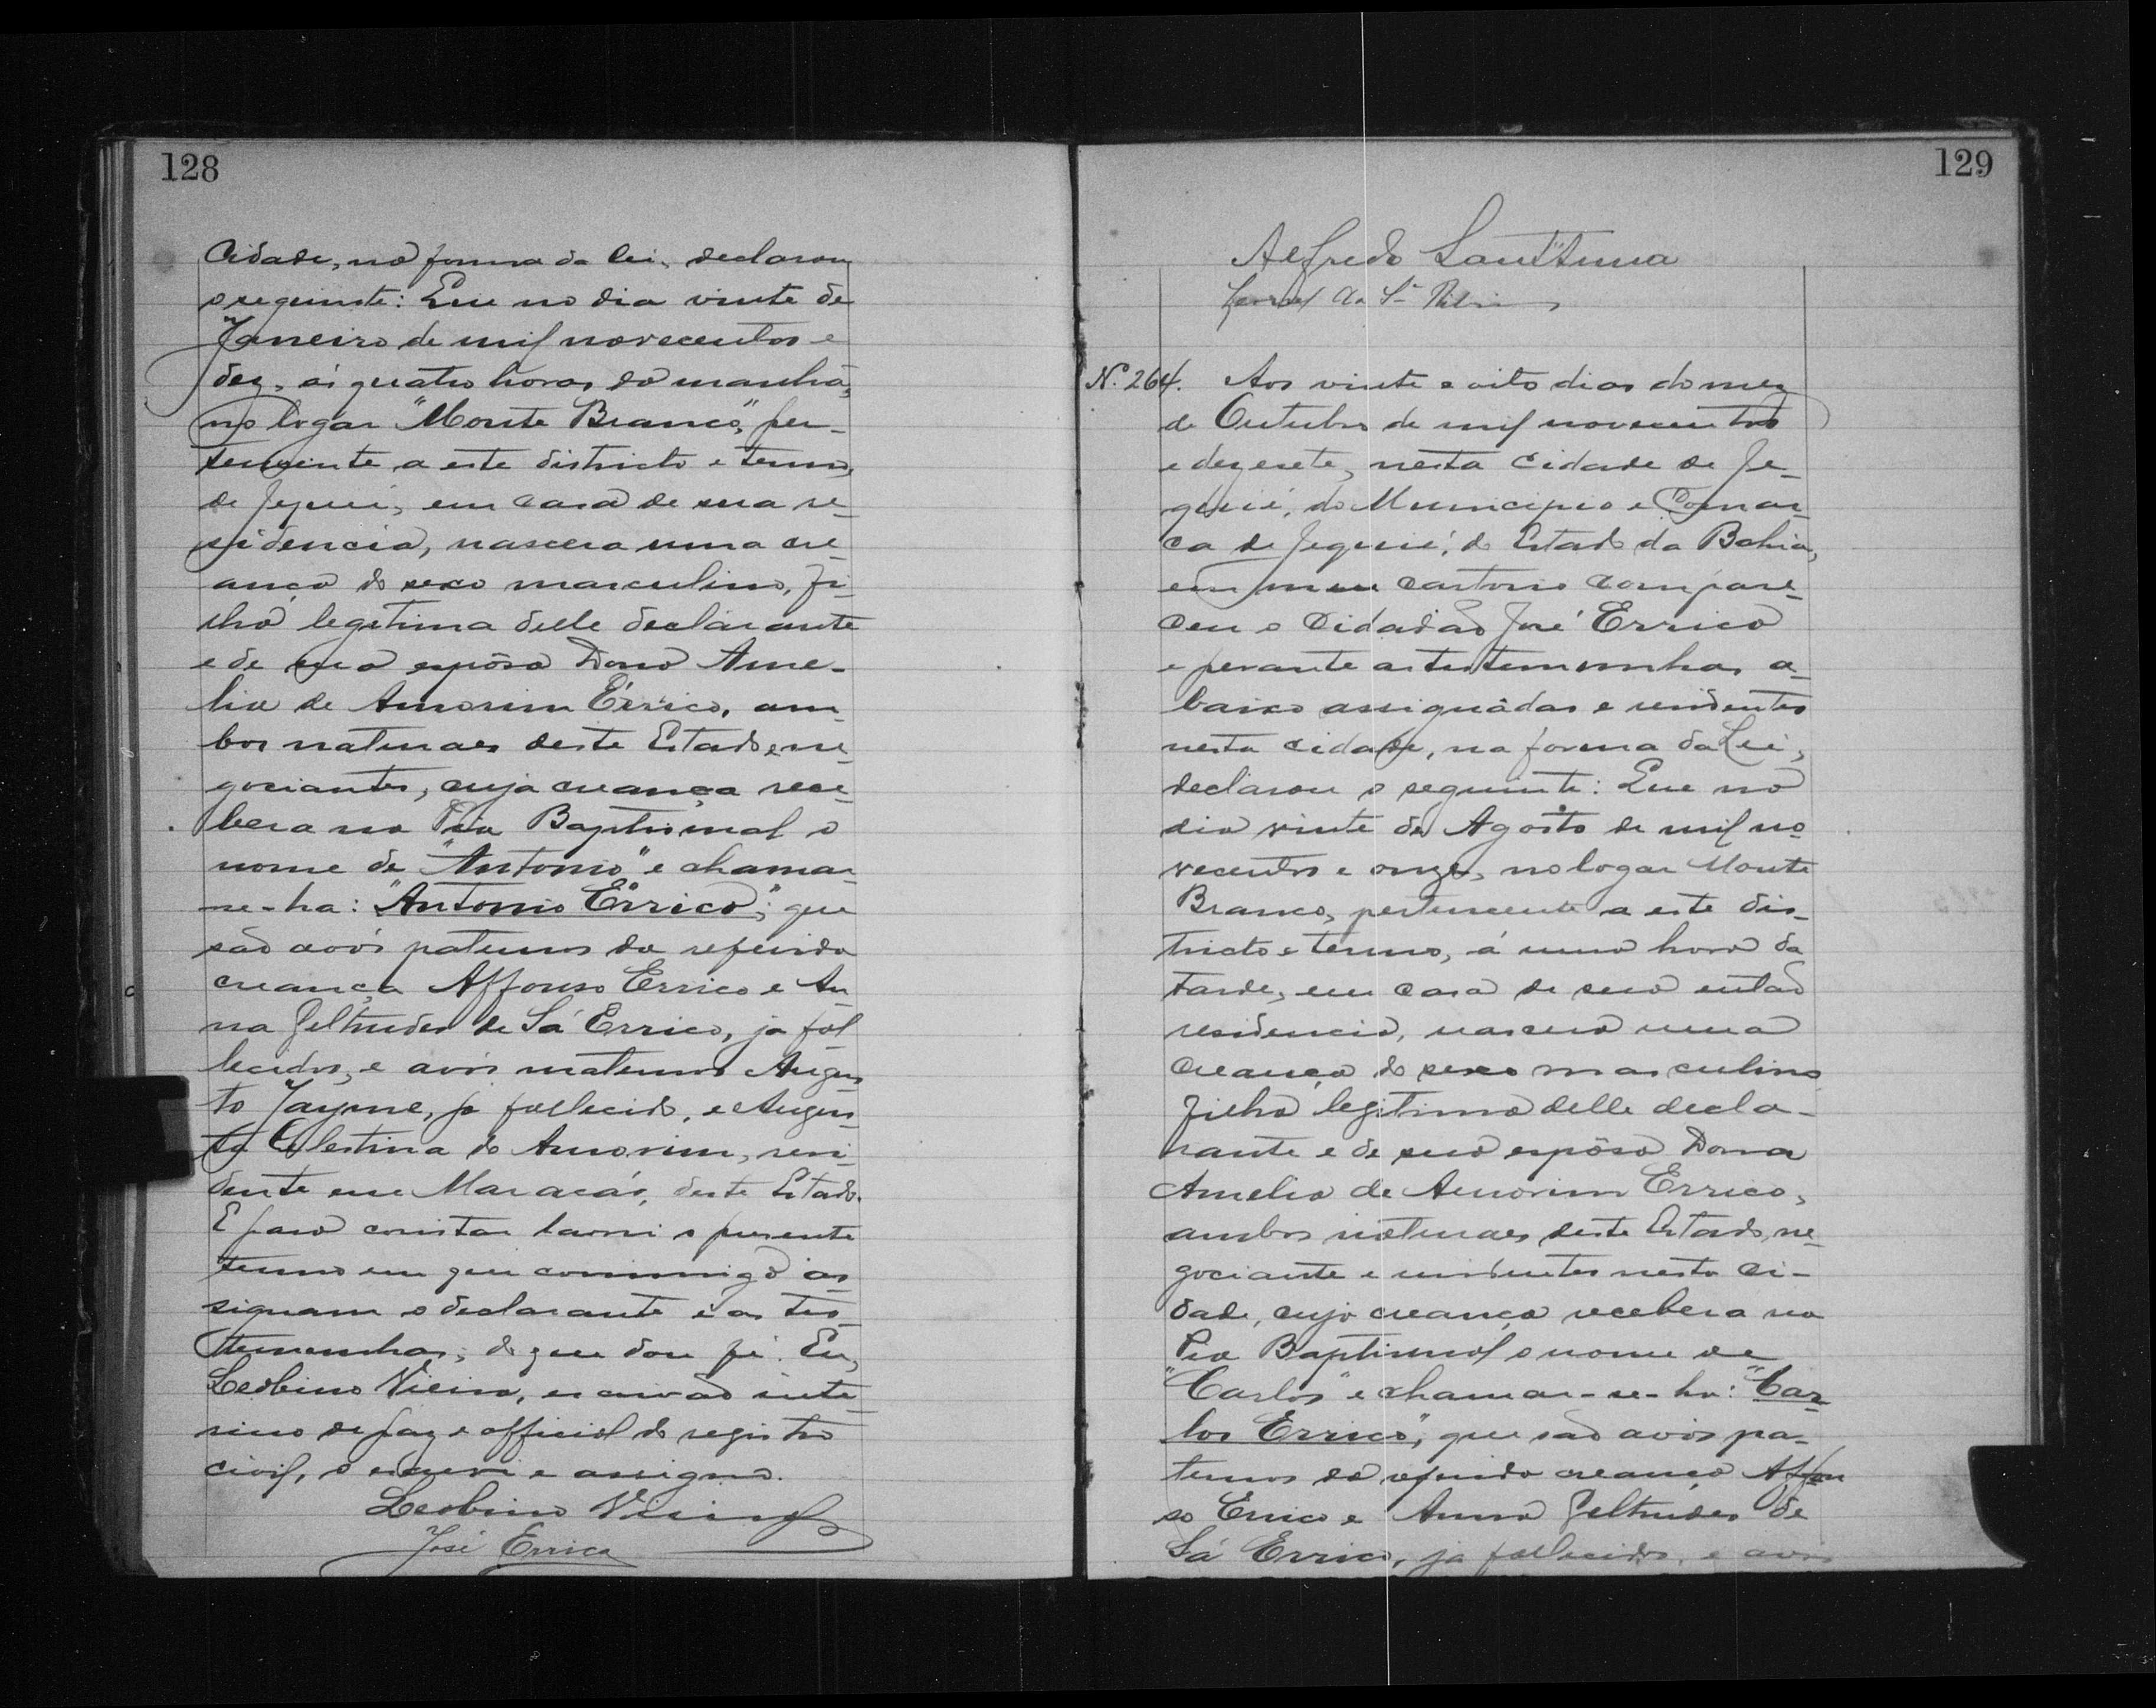 128
Cidade, na forma da lei, declarou
o seguinte: Que no dia vinte de
Janeiro de mil novecentos e
dez, ás quatro horas da manhã,
no logar "Monte Branco", per-
tencente a este districto e termo,
de Jequié, em casa de sua re-
sidencia, nascera uma cre-
ança do sexo masculino, fi-
lha legitima delle declarante
e de sua espôsa Dona Ame-
lia de Amorim Errico, am-
bos naturaes deste Estado e ne-
gociantes, cuja creança rece-
bera na Pia Baptismal o
nome de "Antonio" e chamar-
se-ha: "Antonio Errico"; que
são avós paternos da referida
creança Affonso Errico e An-
na Geltrudes de Sá Errico, ja fal-
lecidos, e avós maternos Augus-
to Jayme, ja fallecido, e Augus-
ta Celestina de Amorim, resi-
dente em Maracás, deste Estado.
E para constar lavrei o presente
termo em que commigo as-
signam o declarante e as tes-
temunhas, do que dou fé. Eu,
Leobino Vieira, escrivão inte-
rino de paz e official do registro
civil, o escrevi e assigno.
Leobino Vieira
José Errico
129
Alfredo Sant'Anna
N. 264. Aos vinte e oito dias do mez
de Outubro de mil novecentos
e dezesete, nesta Cidade de Je-
quié, do Municipio e Comar-
ca de Jequié, do Estado da Bahia,
em meu cartorio compare-
ceu o Cidadão José Errico
e perante as testemunhas a-
baixo assignádas e residentes
nesta cidade, na forma da Lei,
declarou o seguinte: Que no
dia vinte de Agosto de mil no-
vecentos e onze, no logar Monte
Branco, pertencente a este dis-
tricto e termo, á uma hora da
tarde, em casa de sua então
residencia, nascera uma
creança do sexo masculino
filha legitima delle decla-
rante e de sua espôsa Dona
Amelia de Amorim Errico,
ambos naturaes deste Estado, ne-
gociante e residentes nesta ci-
dade, cuja creança recebera na
Pia Baptismal o nome de
"Carlos" e chamar-se-ha: "Car-
los Errico", que são avós pa-
ternos da referida creança Affon
so Errico e Anna Geltrudes de
Sá Errico, ja fallecidos, e avós